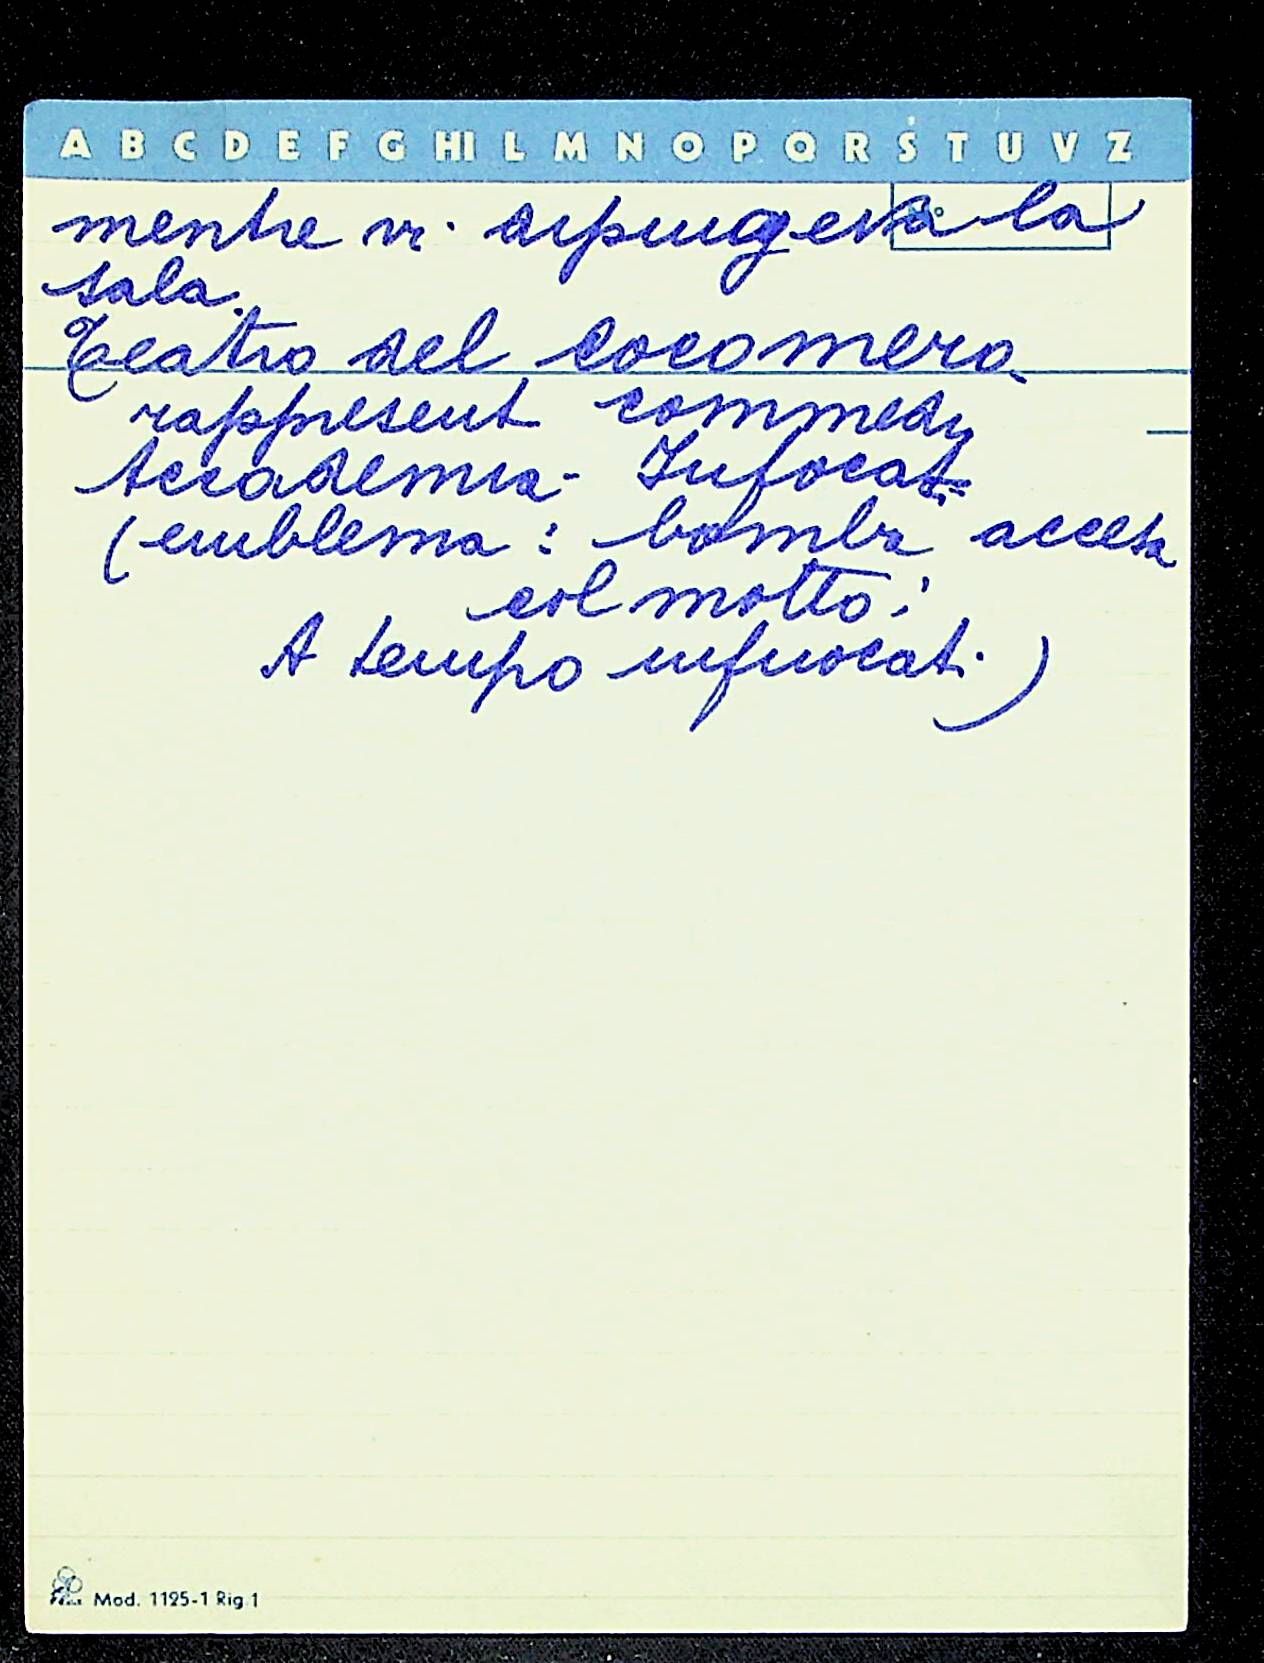 A B C D E F G HI L M N O P Q R S T U V Z
mentre vi dipingeva la
sala.
Teatro del Cocomero
rappresent commedy
Accademia Infocat
(emblema: bomba accesa
col motto:
A tempo infuocati)
Mod. 1125-1 Rig.1